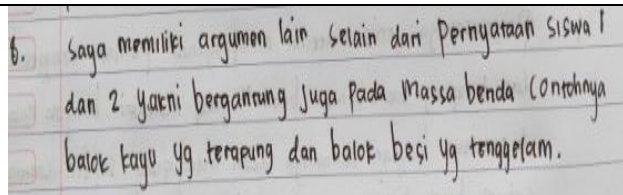 6. Saya memiliki argumen lain selain dari Pernyataan siswa 1
dan 2 yakni bergantung juga pada massa benda contohnya
balok kayu yg terapung dan balok besi yg tenggelam.